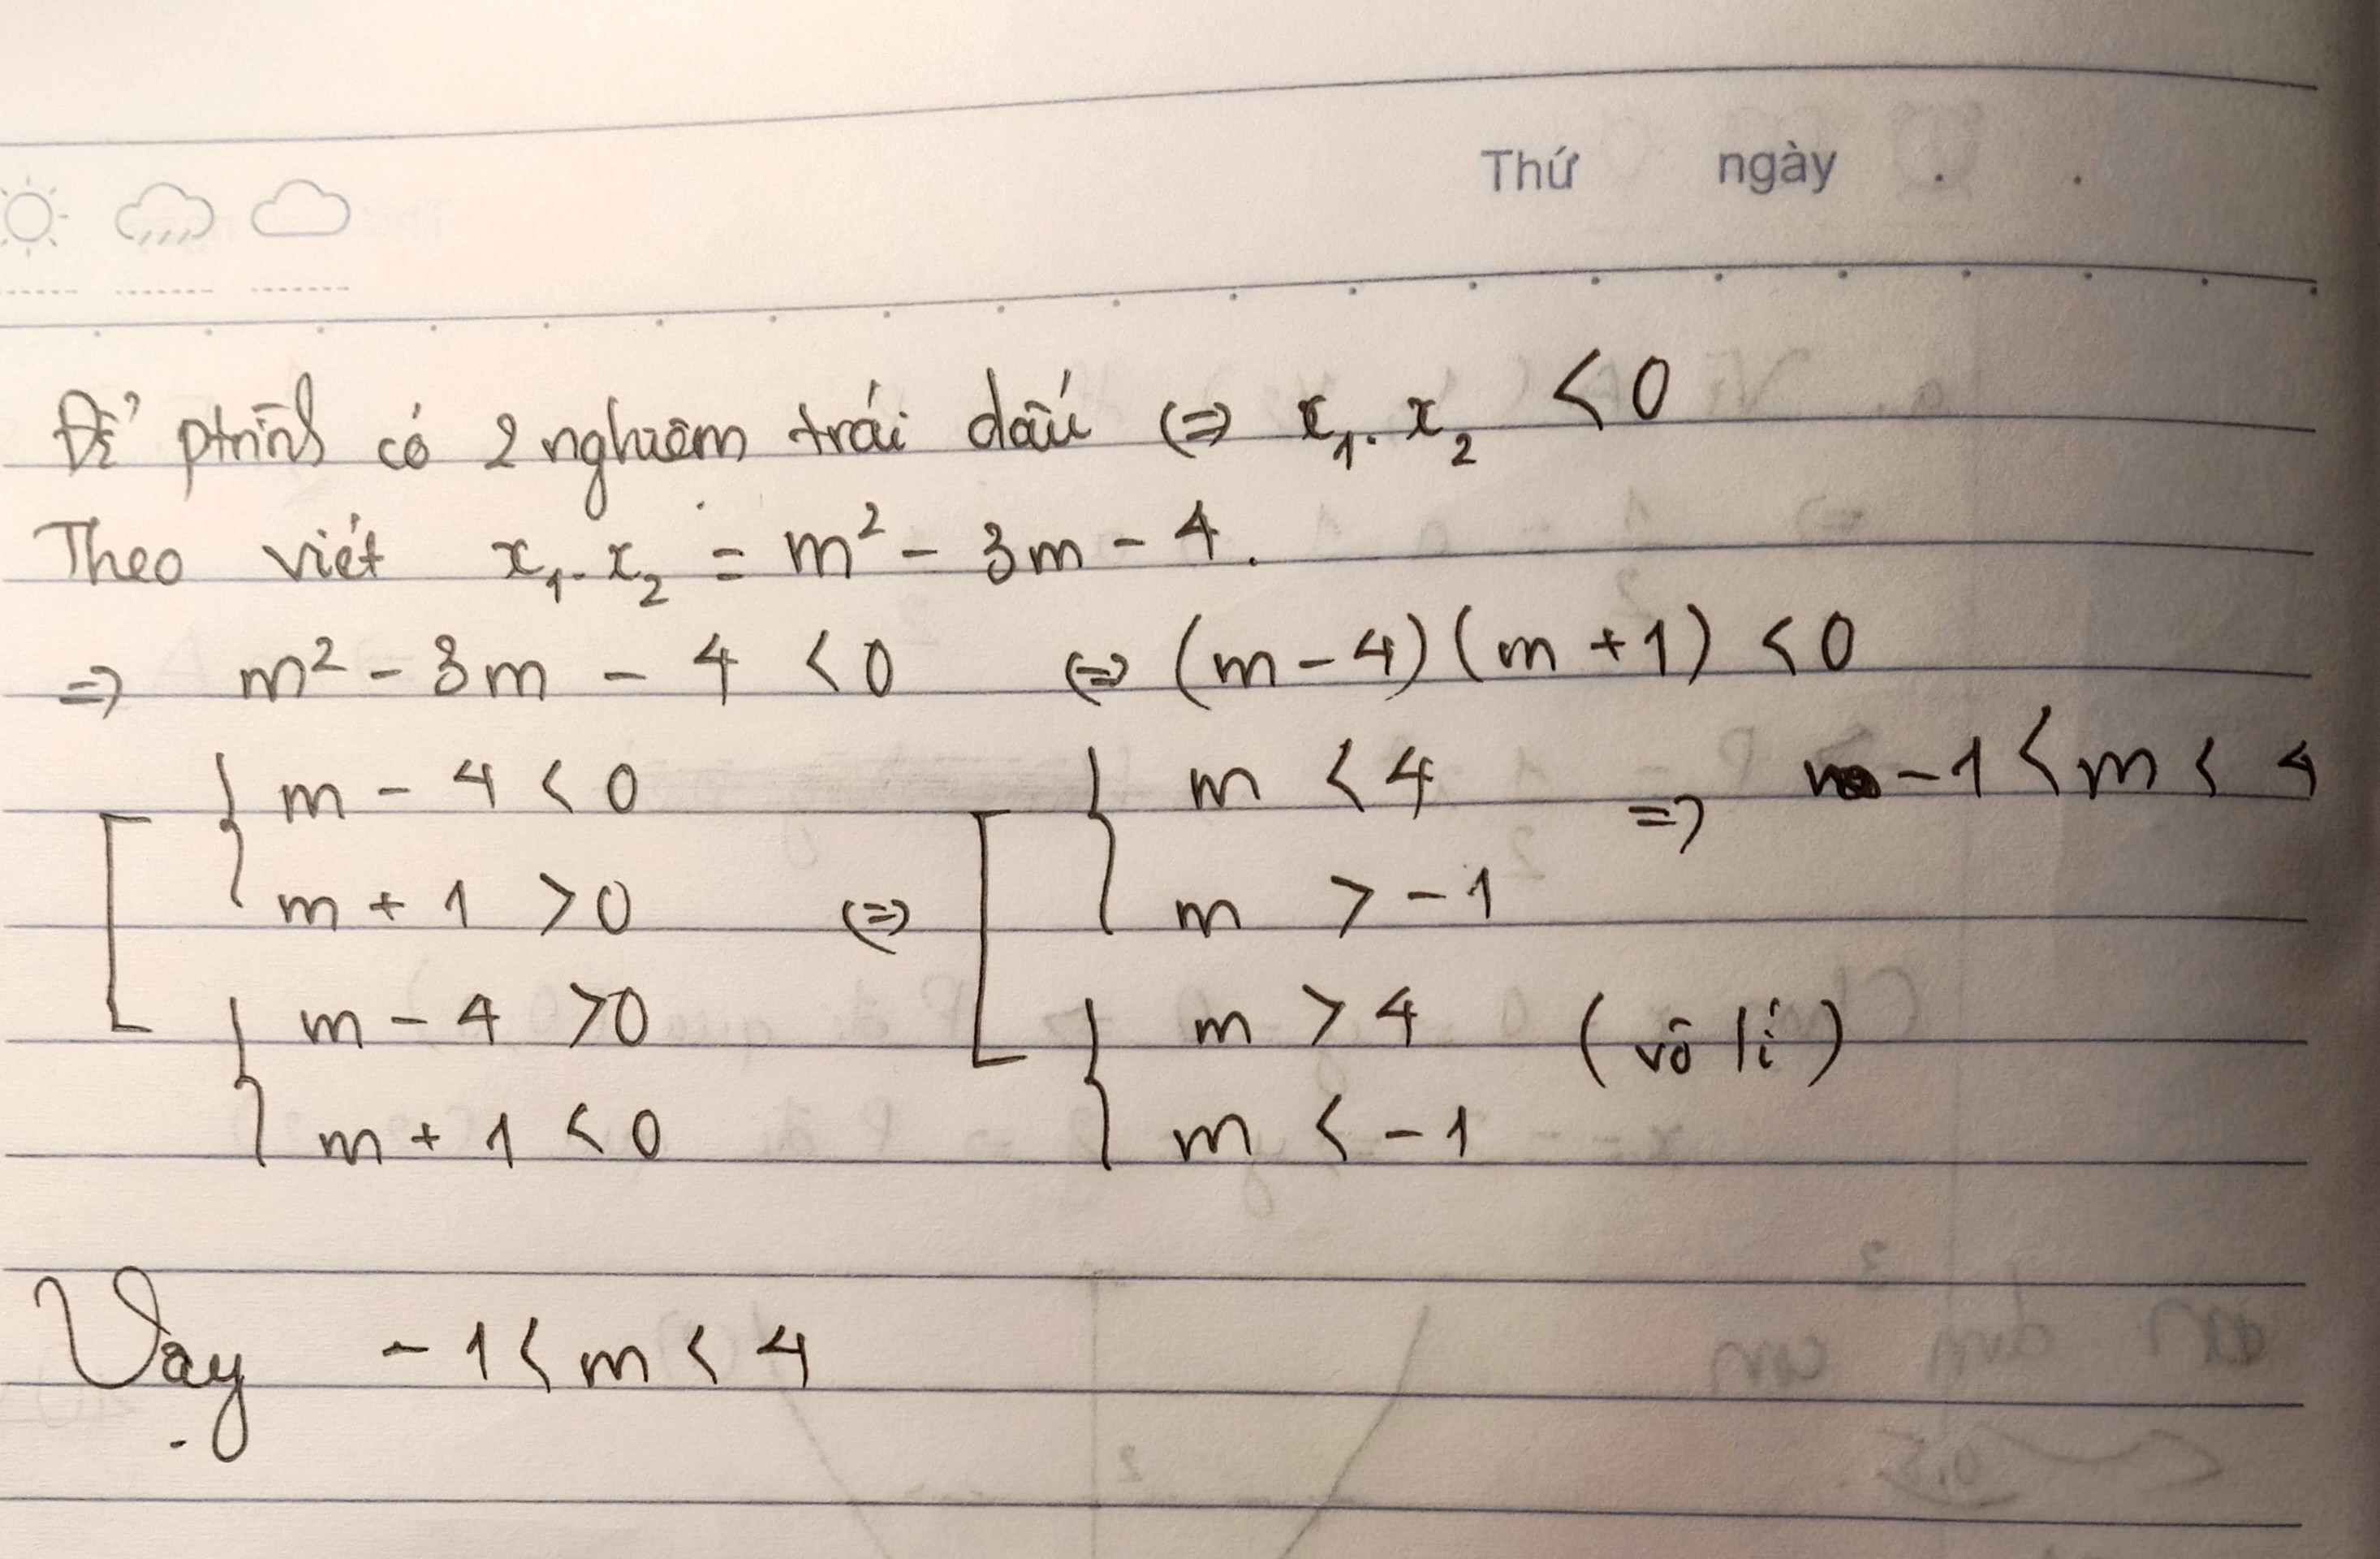 Thứ ngày . .
Để ptrình có 2 nghiệm trái dấu <=> x₁.x₂ < 0
Theo viét x₁.x₂ = m² - 3m - 4.
=> m² - 3m - 4 < 0 <=> (m - 4)(m + 1) < 0
[ { m - 4 < 0 [ { m < 4 => -1 < m < 4
m + 1 > 0 <=> m > -1
{ m - 4 > 0 { m > 4 (vô lí)
m + 1 < 0 m < -1
Vậy -1 < m < 4